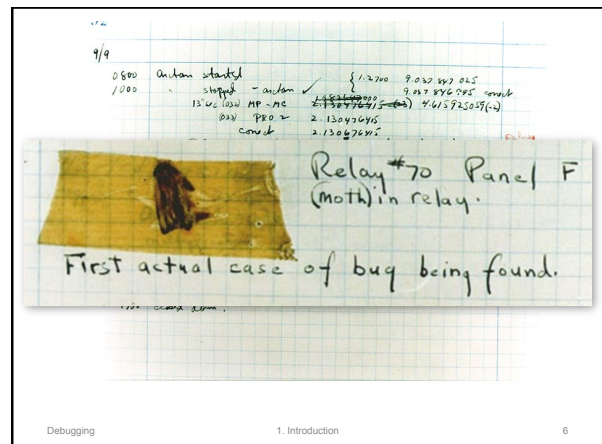 9/9
0800 Antan started { 1.2700 9.037 847 025
1000 " stopped - antan ✓ 9.037 846 995 correct
13"uc (032) MP - MC 2.130476415 (-3) 4.615925059(-2)
(033) PRO 2 2.130476415
correct 2.130676415
Relay #70 Panel F
(moth) in relay.
First actual case of bug being found.
closed down.
Debugging 1. Introduction 6